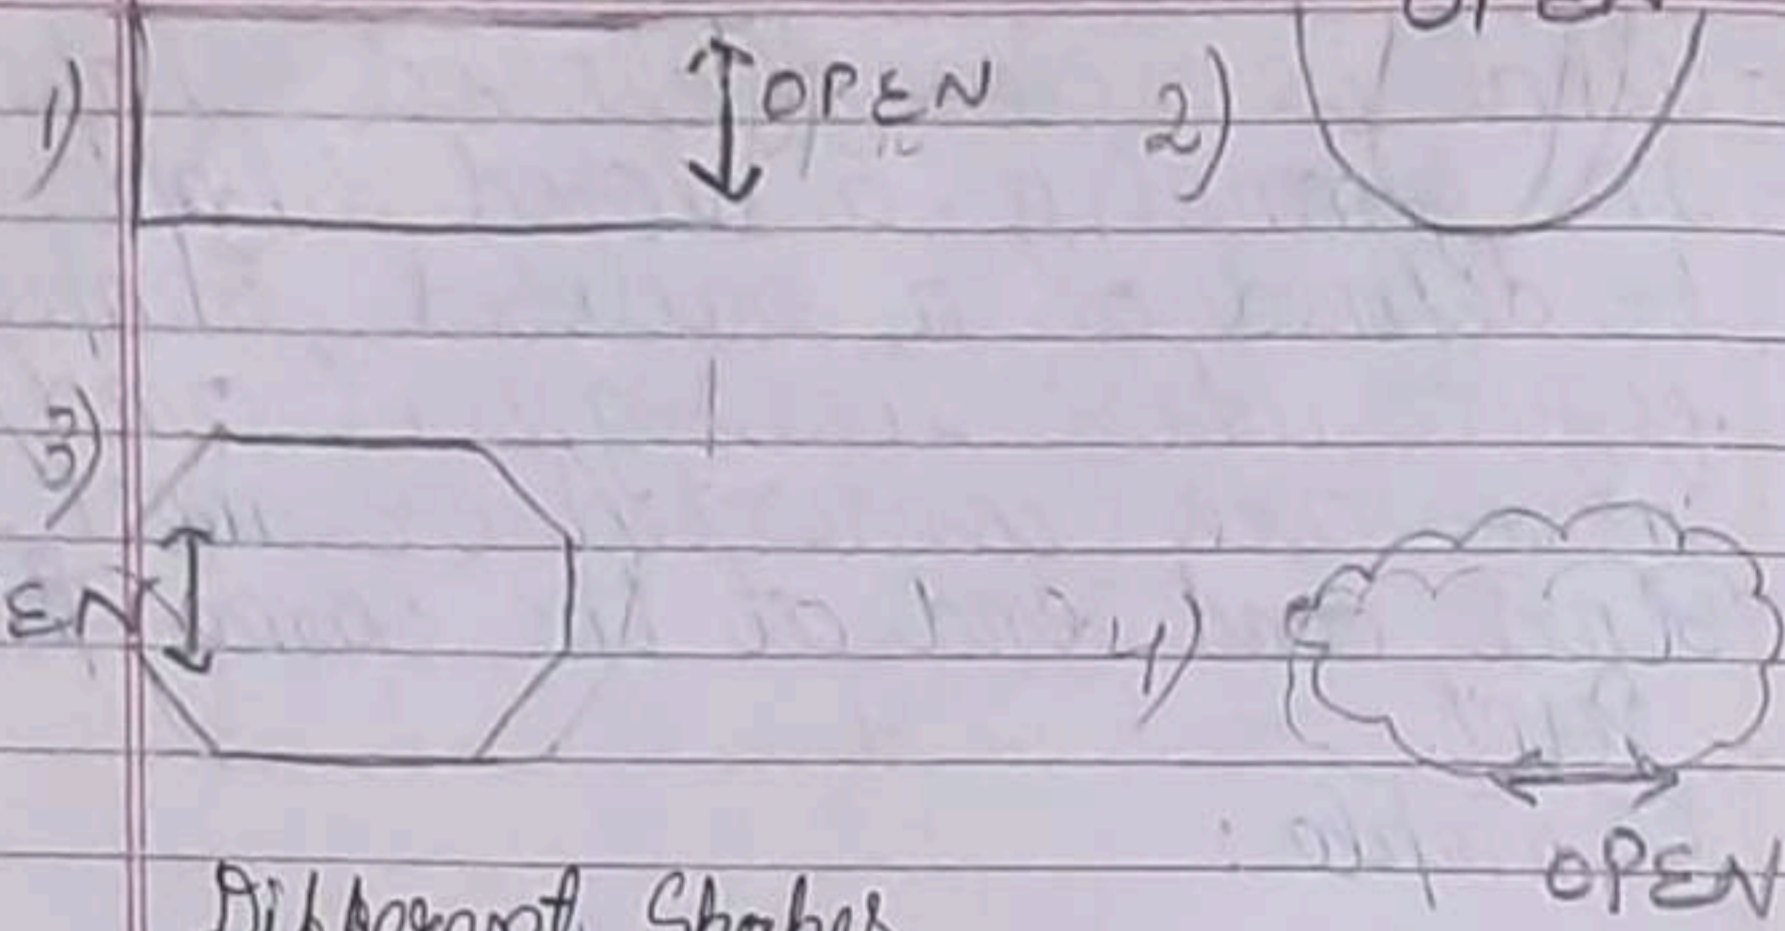 1) OPEN 2) OPEN
3)
EN 4)
OPEN
Different Shapes